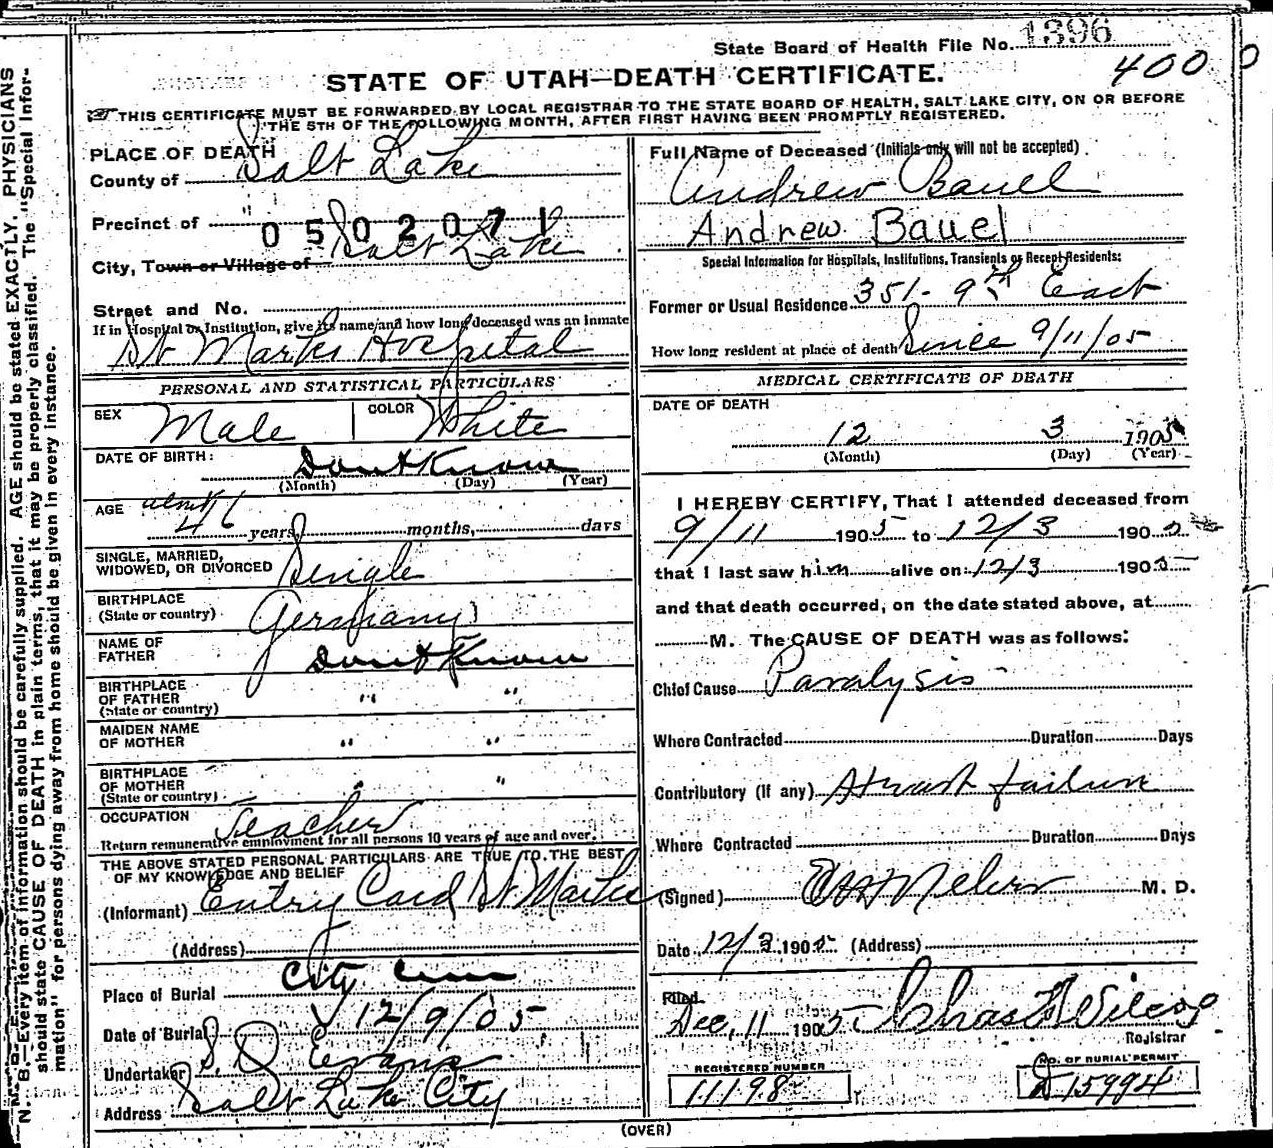 State Board of Health File No. 1396
4000
STATE OF UTAH—DEATH CERTIFICATE.
THIS CERTIFICATE MUST BE FORWARDED BY LOCAL REGISTRAR TO THE STATE BOARD OF HEALTH, SALT LAKE CITY, ON OR BEFORE
THE 5TH OF THE FOLLOWING MONTH, AFTER FIRST HAVING BEEN PROMPTLY REGISTERED.
PLACE OF DEATH
County of Salt Lake
Precinct of "
0502071
City, Town or Village of Salt Lake
Street and No.
If in Hospital or Institution, give its name and how long deceased was an inmate
St Marks Hospital
PERSONAL AND STATISTICAL PARTICULARS
SEX Male COLOR White
DATE OF BIRTH: Dont Know
(Month) (Day) (Year)
AGE about 46 years, months, days
SINGLE, MARRIED,
WIDOWED, OR DIVORCED Single
BIRTHPLACE
(State or country) Germany
NAME OF
FATHER Dont Know
BIRTHPLACE
OF FATHER " "
(State or country)
MAIDEN NAME
OF MOTHER " "
BIRTHPLACE
OF MOTHER " "
(State or country)
OCCUPATION Teacher
Return remunerative employment for all persons 10 years of age and over.
THE ABOVE STATED PERSONAL PARTICULARS ARE TRUE TO THE BEST
OF MY KNOWLEDGE AND BELIEF
(Informant) Entry Card St Marks
(Address)
Place of Burial City Cem
Date of Burial 12/9/05
Undertaker S. D. Evans
Address Salt Lake City
Full Name of Deceased (Initials only will not be accepted)
Andrew Bauel
Andrew Bauel
Special Information for Hospitals, Institutions, Transients or Recent Residents:
Former or Usual Residence 351- 9th East
How long resident at place of death Since 9/11/05
MEDICAL CERTIFICATE OF DEATH
DATE OF DEATH
12 3 1905
(Month) (Day) (Year)
I HEREBY CERTIFY, That I attended deceased from
9/11 1905 to 12/3 1905
that I last saw him alive on 12/3 1905
and that death occurred, on the date stated above, at
M. The CAUSE OF DEATH was as follows:
Chief Cause Paralysis
Where Contracted Duration Days
Contributory (If any) Heart failure
Where Contracted Duration Days
(Signed) M. D.
Date 12/3 1905 (Address)
Filed
Dec, 11 1905 Chas Wilcox
Registrar
REGISTERED NUMBER
11198
NO. OF BURIAL PERMIT
D 15994
(OVER)
N. B.—Every item of information should be carefully supplied. AGE should be stated EXACTLY. PHYSICIANS
should state CAUSE OF DEATH in plain terms, that it may be properly classified. The "Special Infor-
mation" for persons dying away from home should be given in every instance.